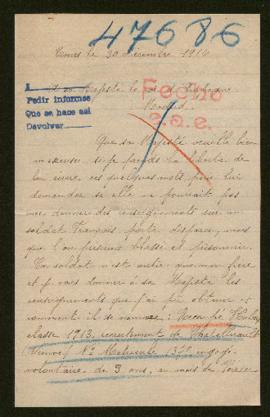 47686
Tours le 30 Décembre 1914
A sa Majesté le Roi d'Espagne
Madrid
Fecho
s.a.e.
Pedir informes
Que se hace así
Devolver
Que sa Majesté veuille bien
m'excuser si je prends la liberté de
lui écrire, ces quelques mots pour lui
demander si elle ne pourrait pas
me donner des renseignements sur un
soldat Français porté disparu, mais
que l'on présume blessé et prisonnier.
Ce soldat n'est autre que mon frère
et je vais donner à sa Majesté les
renseignements que j'ai pu obtenir et
comment il se nomme:
classe 1913, recrutement de Châtellerault
(Vienne) No Matricule
volontaire de 3 ans, au mois de